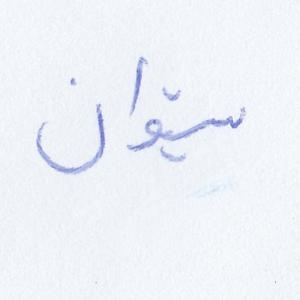 سێوان